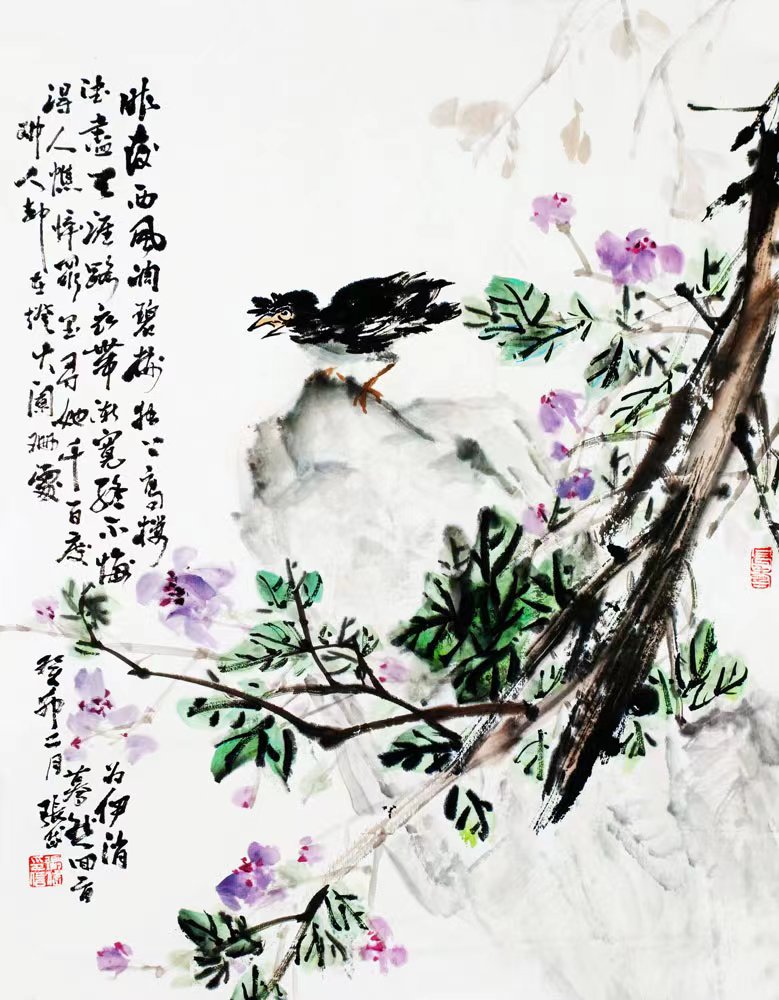 昨夜西风凋碧树独上高楼
望盡天涯路衣带渐寬终不悔
为伊消
得人憔悴众里寻她千百度
蓦然回首
那人却在燈火阑珊處
癸卯二月
张